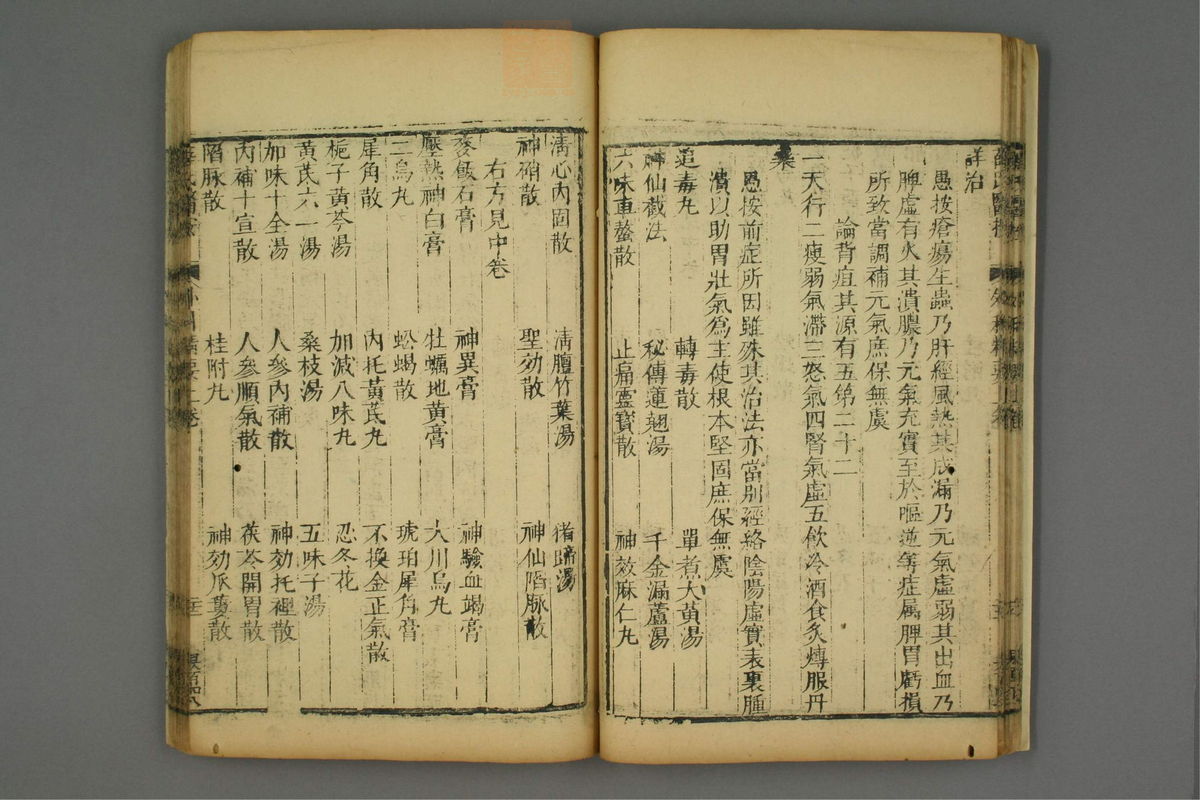 詳治
愚按瘡瘍生蟲乃肝經風熱其成漏乃元氣虛弱其出血乃
脾虛有火其潰膿乃元氣充實至於嘔逆等症属脾胃虧損
所致當調補元氣庶保無虞
論背疽其源有五第二十二
一天行二瘦弱氣滯三怒氣四腎氣虛五飲冷酒食炙煿服丹
藥
愚按前症所因雖殊其治法亦當别經絡陰陽虛實表裏腫
潰以助胃壯氣爲主使根本堅固庶保無虞
追毒丸 轉毒散 單煮大黃湯
神仙截法 秘傳蓮翹湯 千金漏蘆湯
六味車螯散 止痛靈寶散 神效麻仁丸
清心內固散 淸膻竹葉湯 猪蹄湯
神硝散 聖効散 神仙䧟脉散
右方見中卷
麥飯石膏 神異膏 神驗血竭膏
壓熱神白膏 牡蠣地黃膏 大川烏丸
三烏丸 蚣蝎散 琥珀犀角膏
犀角散 內托黃茋丸 不換金正氣散
梔子黃芩湯 加減八味丸 忍冬花
黃茋六一湯 桑枝湯 五味子湯
加味十全湯 人參內補散 神効托裡散
內補十宣散 人參順氣散 茯苓開胃散
䧟脉散 桂附丸 神効瓜蔞散